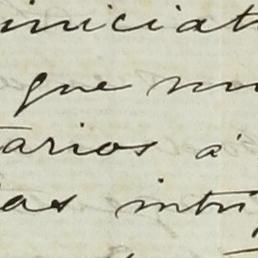 iniciat
que mu
tarios á
las intri